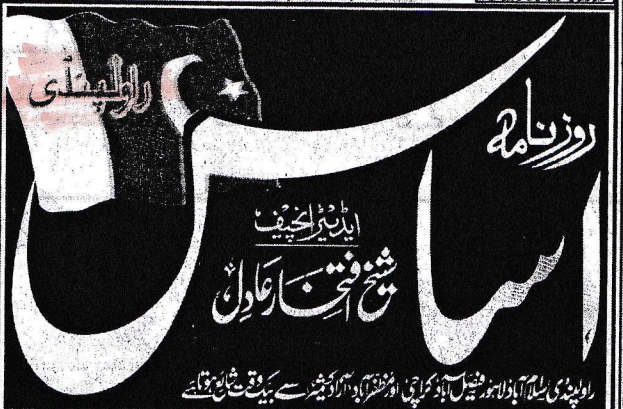 روزنامہ
اساس
راولپنڈی
ایڈیٹر انچیف
شیخ افتخار عادل
راولپنڈی اسلام آباد لاہور فیصل آباد کراچی اور مظفر آباد آزاد کشمیر سے بیک وقت شائع ہوتا ہے